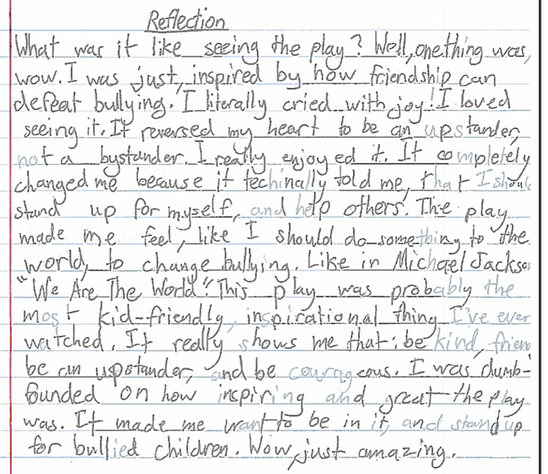 Reflection
What was it like seeing the play? Well, one thing was,
wow. I was just, inspired by how friendship can
defeat bullying. I literally cried with joy! I loved
seeing it. It reversed my heart to be an upstander,
not a bystander. I really enjoyed it. It completely
changed me because it techinally told me, that I should
stand up for myself, and help others. The play
made me feel, like I should do something to the
world, to change bullying. Like in Michael Jackson
"We Are The World". This play was probably the
most kid-friendly, inspirational thing I've ever
watched. It really shows me that: be kind,
be an upstander, and be courageous. I was dumb-
founded on how inspiring and great the play
was. It made me want to be in it, and stand up
for bullied children. Wow, just amazing.